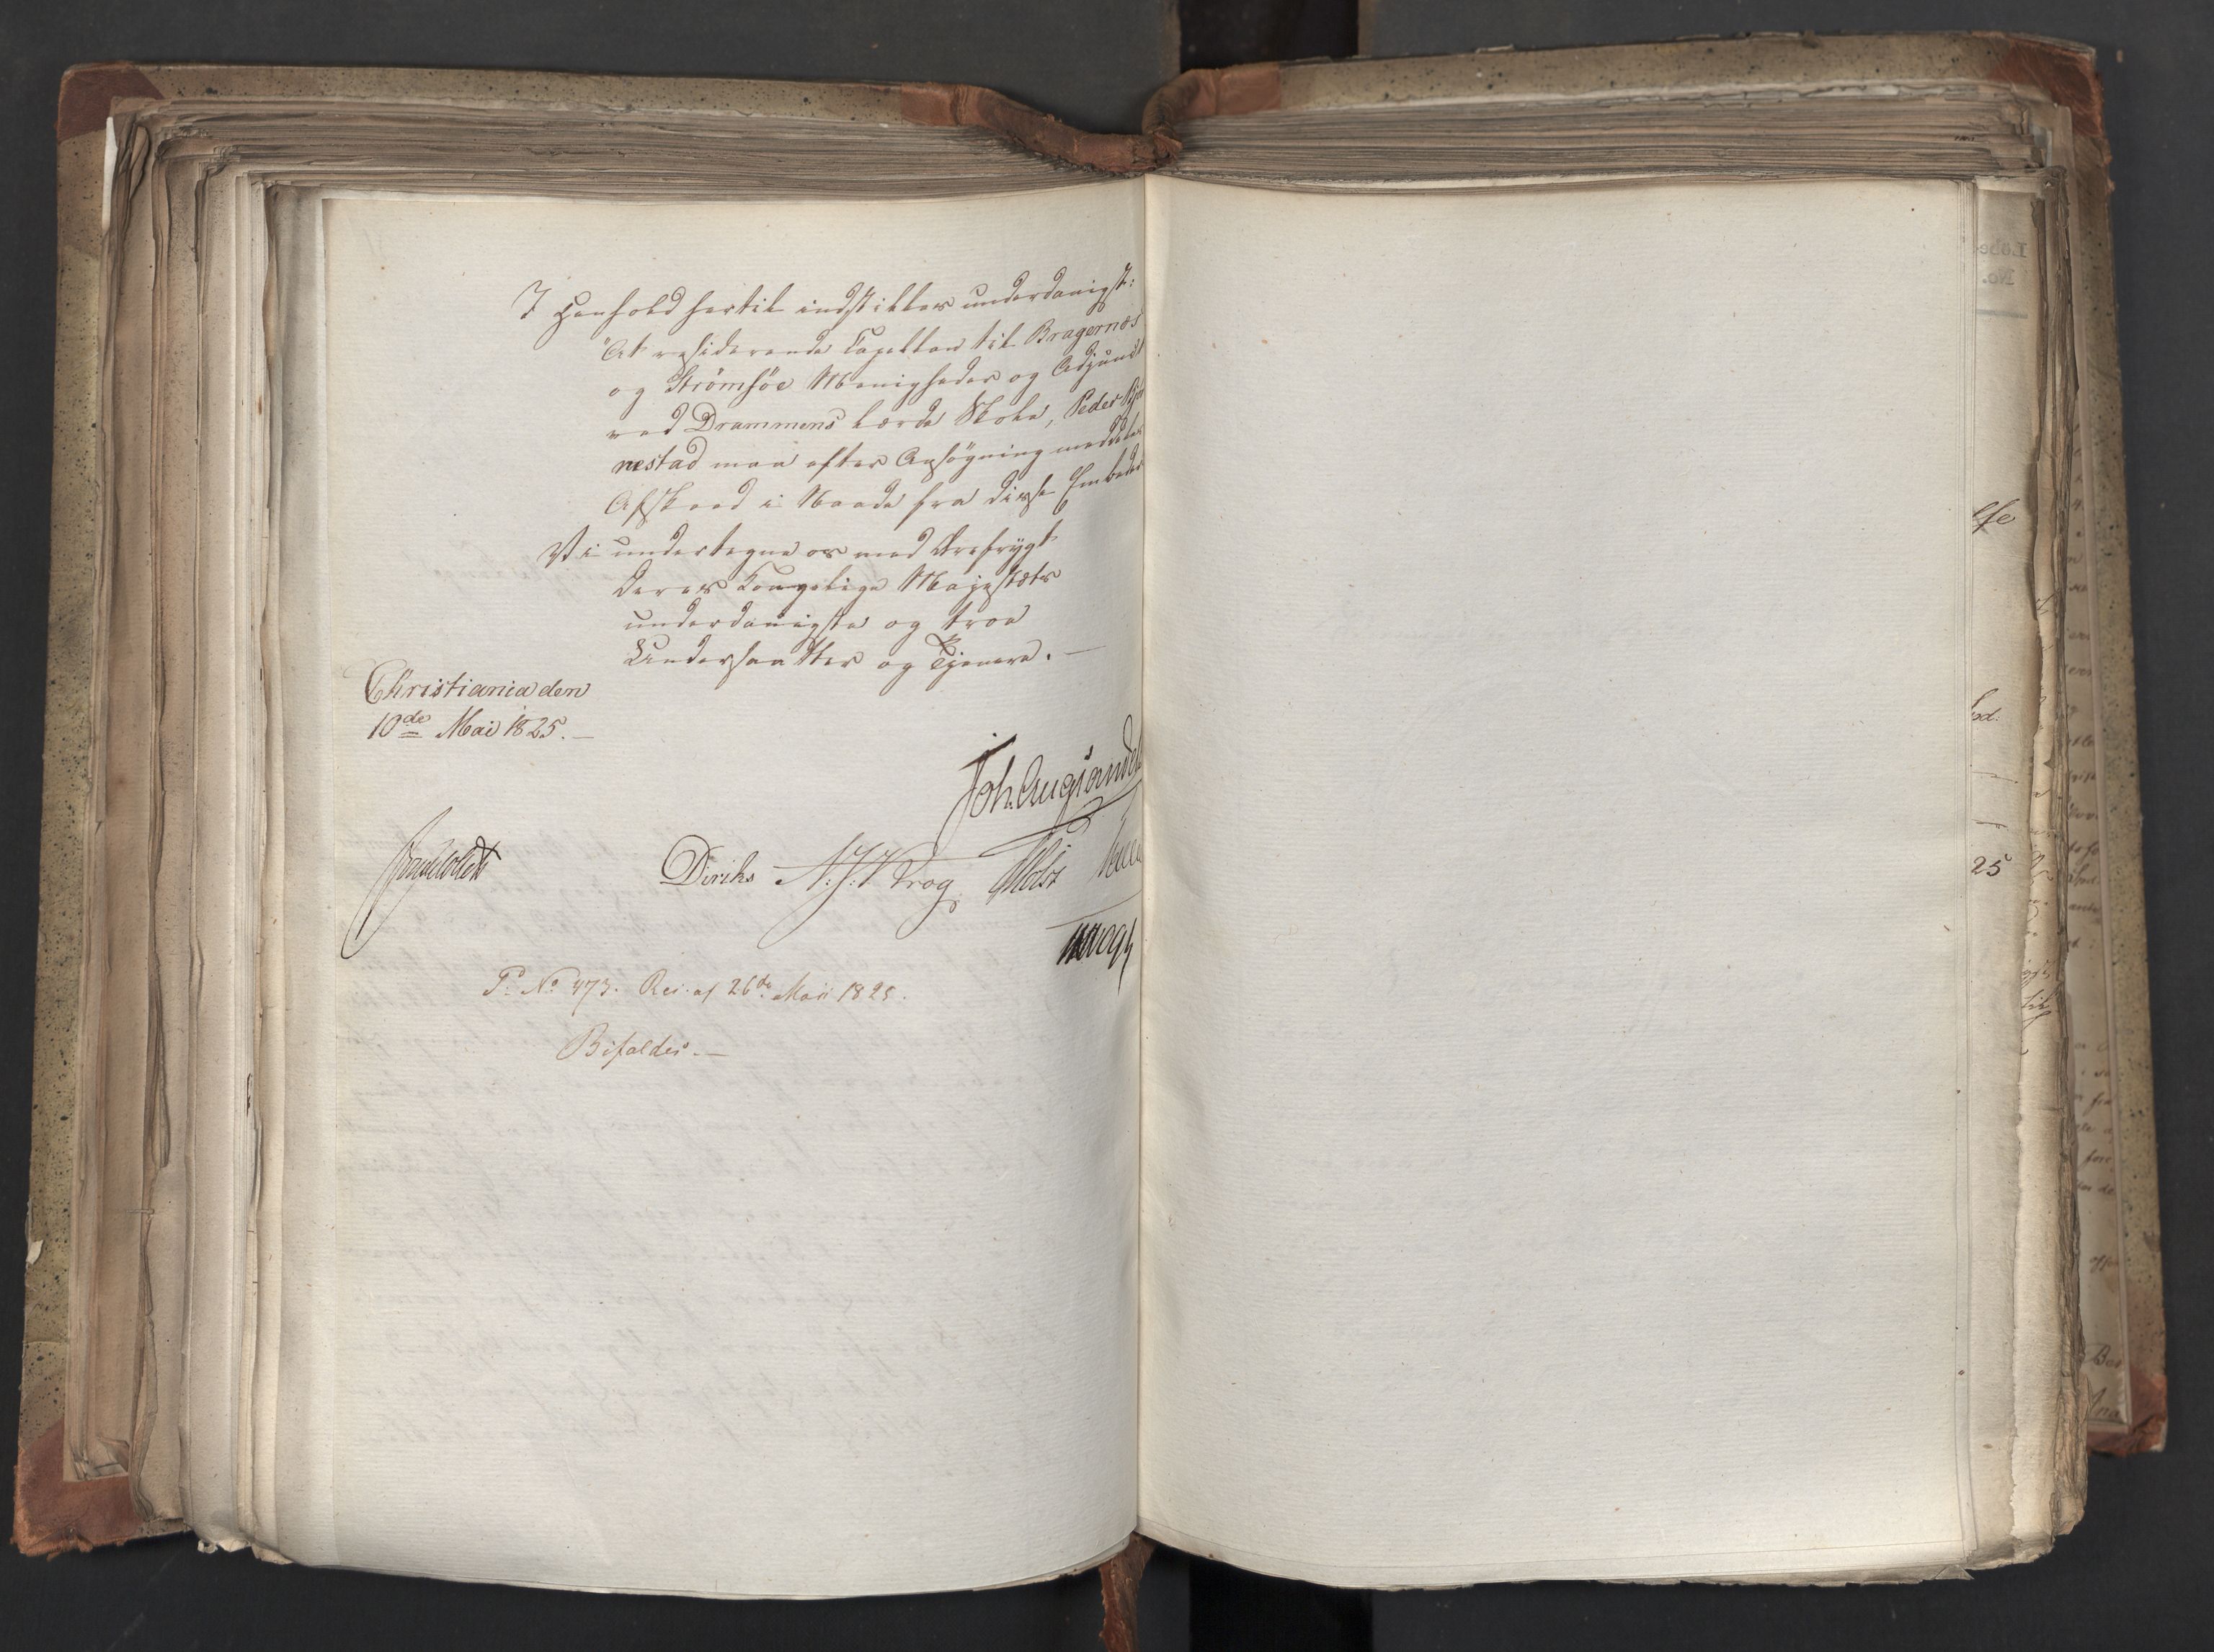 I Henhold hertil indstilles underdanigst:
"At residerende Capellan til Bragernæs
og Strømsøe Menigheder og Adjunct
ved Drammens lærde Skole, Peder
nestad maa efter Ansøgning meddeles
Afskeed i Naade fra disse Embeder
Vi undertegne os med Ærefrygt
Deres Kongelige Majestæts
underdanigste og troe
Undersaatter og Tjenere. —
Christiania den
10de Mai 1825. —
Joh. Aug. Sandels
Diriks N: J: V Krog
P. No 473. Res. af 26de Maii 1825.
Bifaldes. —
25